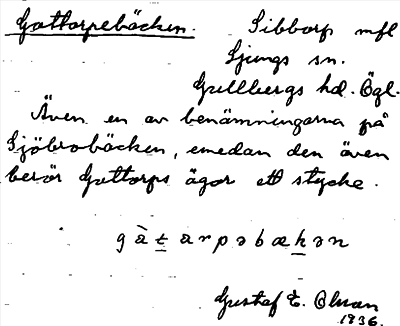 Gottorpebäcken. Sibborp mfl
Ljungs sn.
Gullbergs hd. Ögl.
Även en av benämningarna på
Sjöbrobäcken, emedan den även
berör Gottorps ägor ett stycke.
g à t a r p ə b æ k ə n
Gustaf E. Olsson
1936.